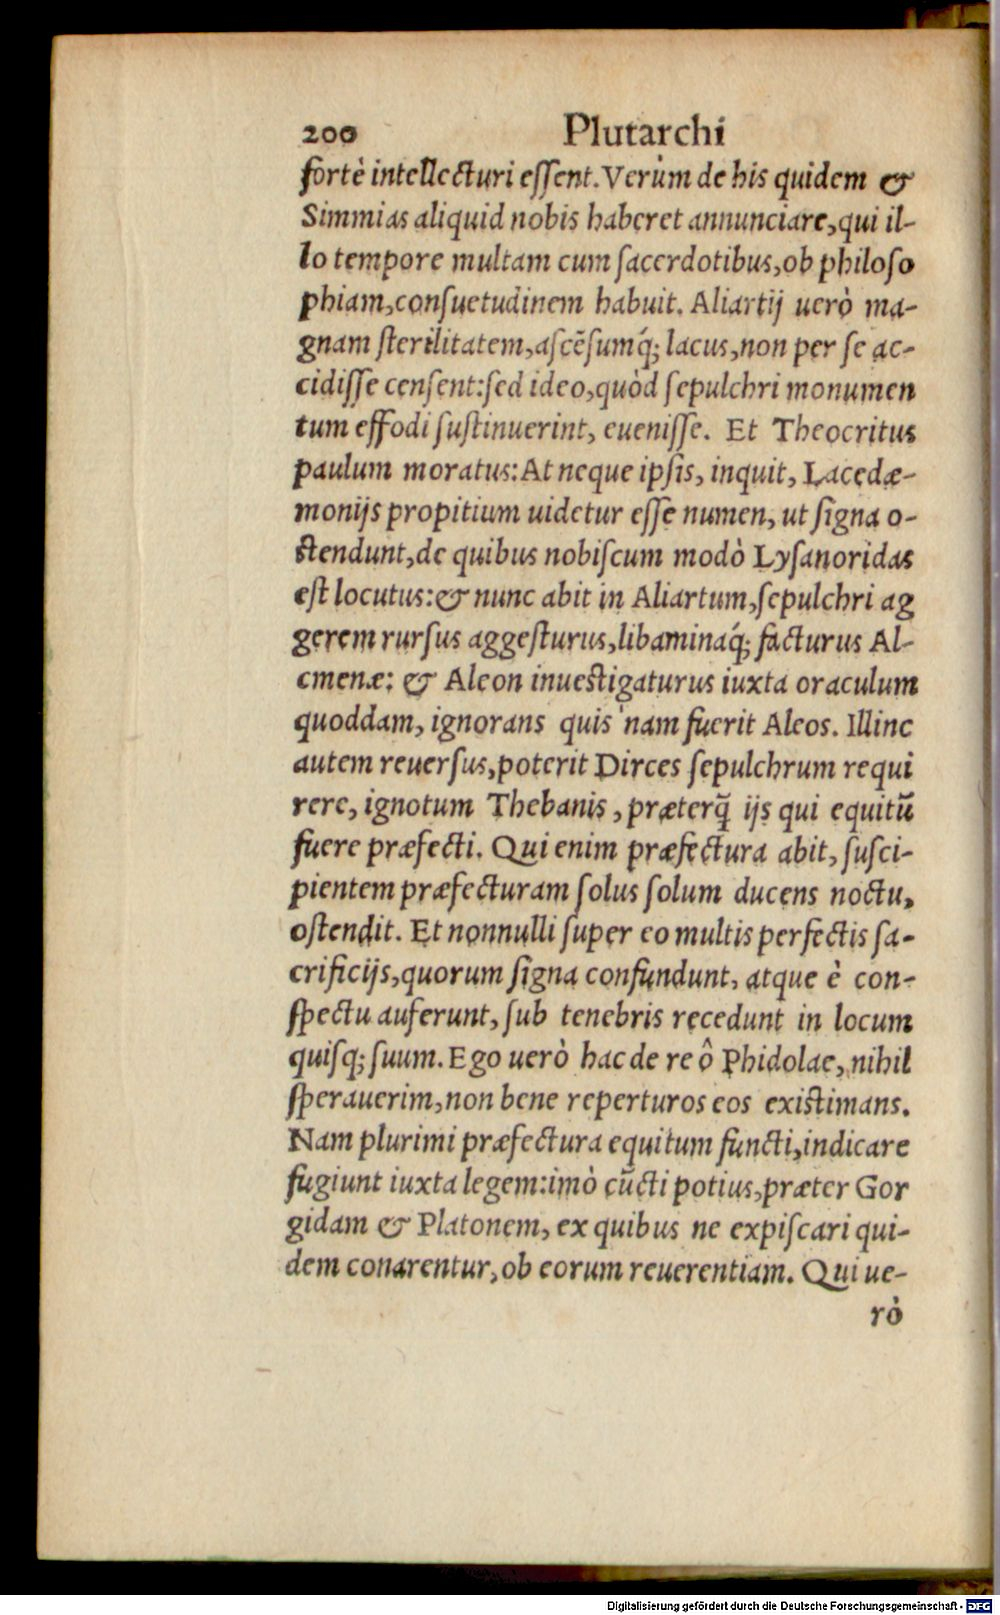 200 Plutarchi
fortè intellecturi essent. Verùm de his quidem &
Simmias aliquid nobis haberet annunciare, qui il-
lo tempore multam cum sacerdotibus, ob philoso
phiam, consuetudinem habuit. Aliartij uerò ma-
gnam sterilitatem, ascẽsumq́; lacus, non per se ac-
cidisse censent: sed ideo, quòd sepulchri monumen
tum effodi sustinuerint, euenisse. Et Theocritus
paulum moratus: At neque ipsis, inquit, Lacedæ-
monijs propitium uidetur esse numen, ut signa o-
stendunt, de quibus nobiscum modò Lysanoridas
est locutus: & nunc abit in Aliartum, sepulchri ag
gerem rursus aggesturus, libaminaq́; facturus Al-
cmenæ: & Aleon inuestigaturus iuxta oraculum
quoddam, ignorans quis nam fuerit Aleos. Illinc
autem reuersus, poterit Dirces sepulchrum requi
rere, ignotum Thebanis, præterq̃ ijs qui equitũ
fuere præfecti. Qui enim præfectura abit, susci-
pientem præfecturam solus solum ducens noctu,
ostendit. Et nonnulli super eo multis perfectis sa-
crificijs, quorum signa confundunt, atque è con-
spectu auferunt, sub tenebris recedunt in locum
quisq; suum. Ego uerò hac de re ô Phidolae, nihil
sperauerim, non bene reperturos eos existimans.
Nam plurimi præfectura equitum functi, indicare
fugiunt iuxta legem: imò cũcti potius, præter Gor
gidam & Platonem, ex quibus ne expiscari qui-
dem conarentur, ob eorum reuerentiam. Qui ue-
rò
Digitalisierung gefördert durch die Deutsche Forschungsgemeinschaft - DFG